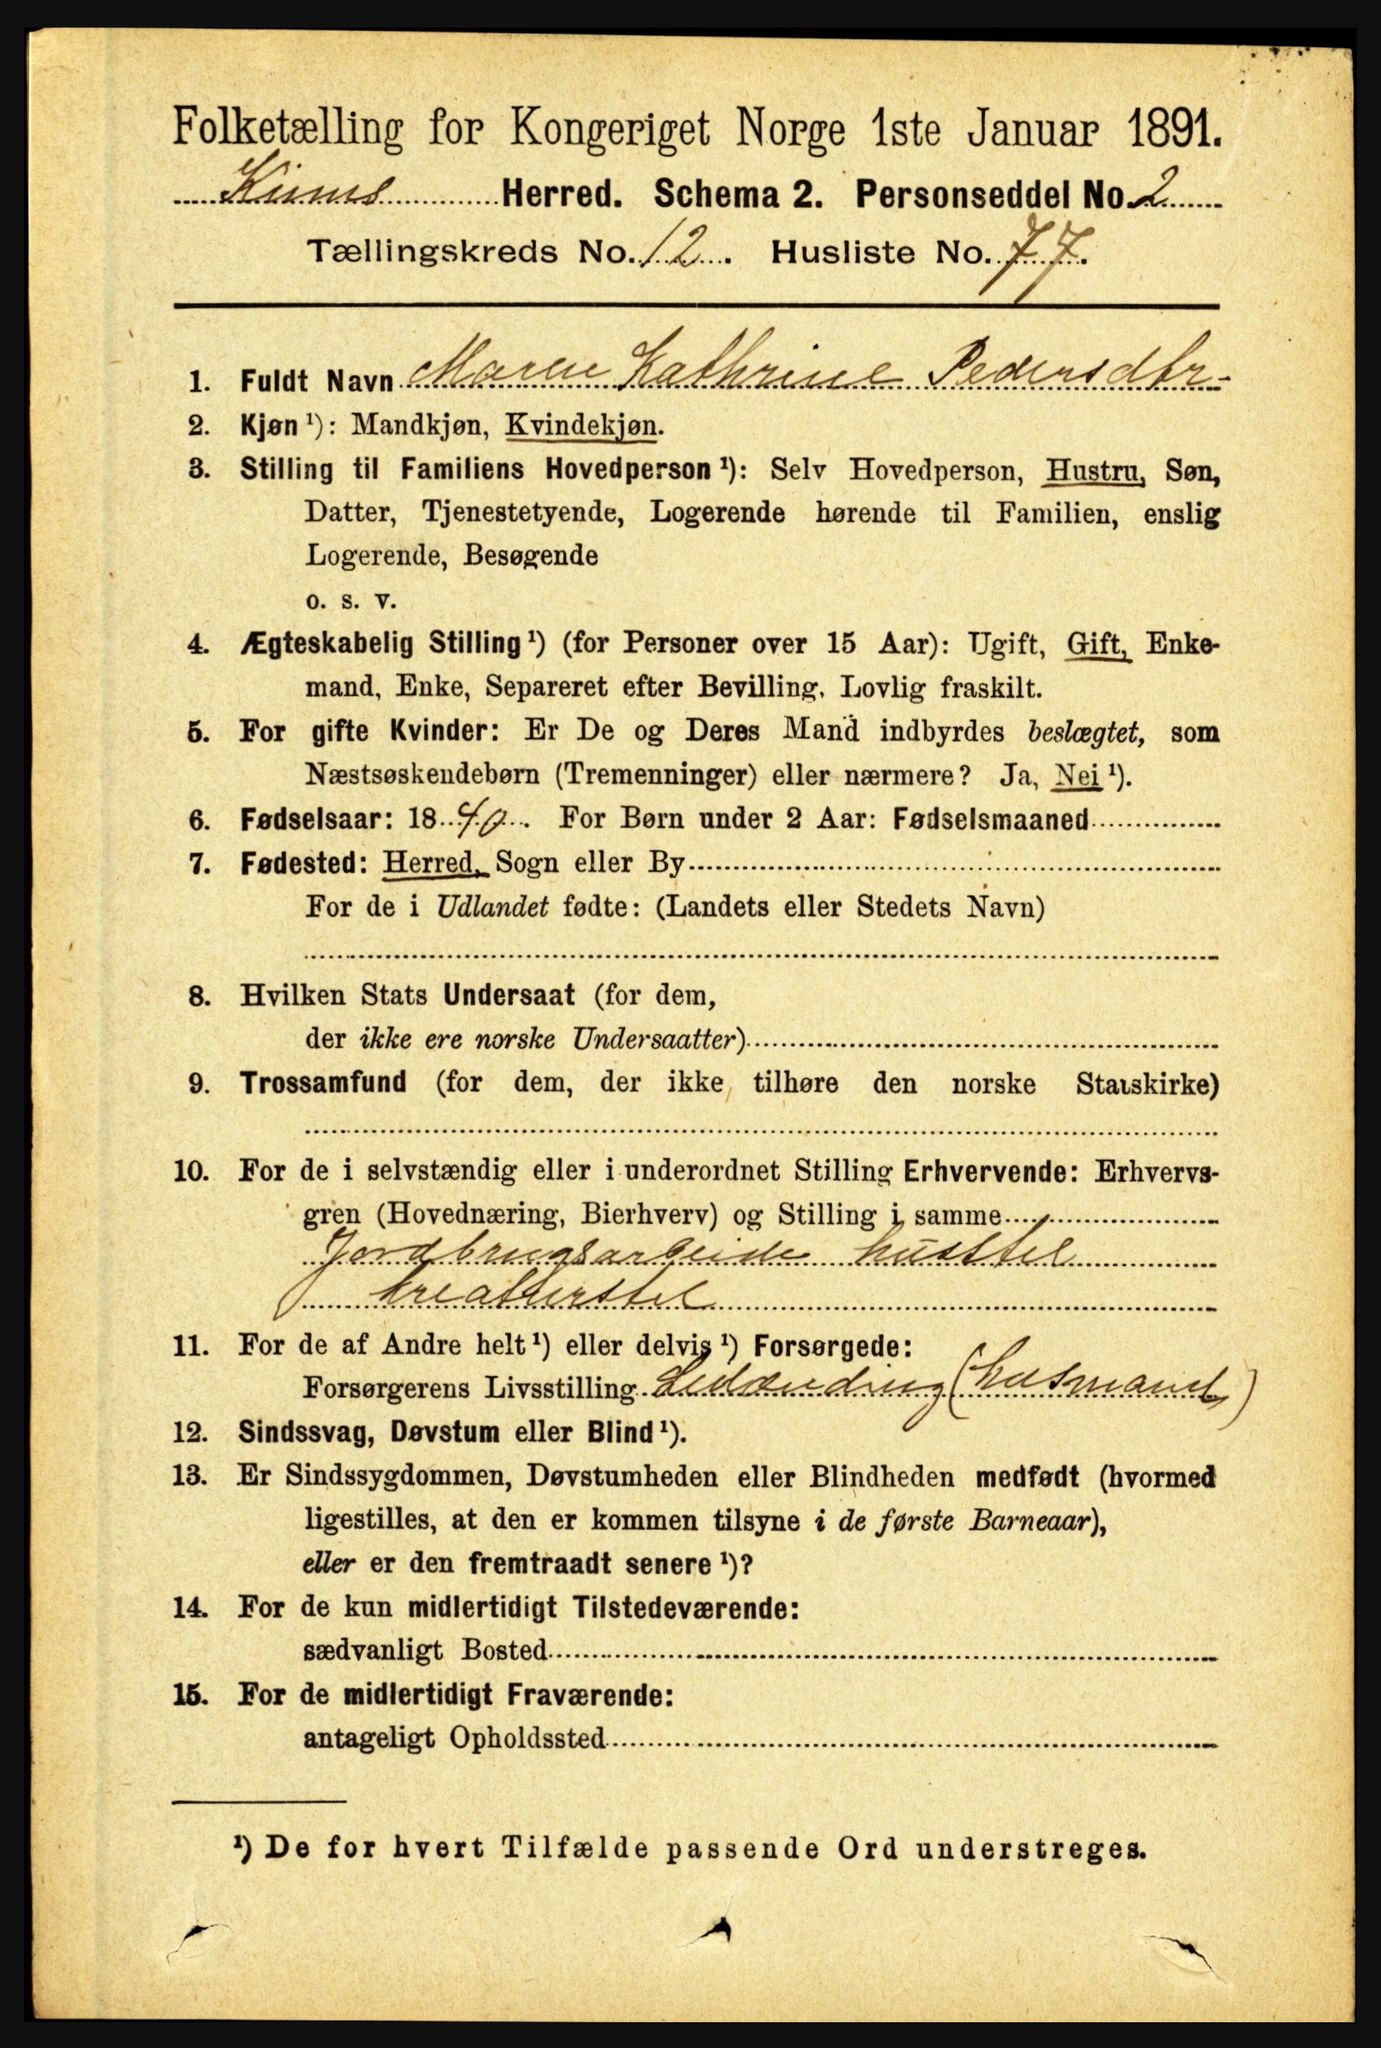 Folketælling for Kongeriget Norge 1ste Januar 1891.
Kinns Herred. Schema 2. Personseddel No. 2
Tællingskreds No. 12. Husliste No. 77.
1. Fuldt Navn Maren Kathrine Pedersdtr-
2. Kjøn ¹): Mandkjøn, Kvindekjøn.
3. Stilling til Familiens Hovedperson ¹): Selv Hovedperson, Hustru, Søn,
Datter, Tjenestetyende, Logerende hørende til Familien, enslig
Logerende, Besøgende
o. s. v.
4. Ægteskabelig Stilling ¹) (for Personer over 15 Aar): Ugift, Gift, Enke-
mand, Enke, Separeret efter Bevilling, Lovlig fraskilt.
5. For gifte Kvinder: Er De og Deres Mand indbyrdes beslægtet, som
Næstsøskendebørn (Tremenninger) eller nærmere? Ja, Nei ¹).
6. Fødselsaar: 1840. For Børn under 2 Aar: Fødselsmaaned
7. Fødested: Herred, Sogn eller By
For de i Udlandet fødte: (Landets eller Stedets Navn)
8. Hvilken Stats Undersaat (for dem,
der ikke ere norske Undersaatter)
9. Trossamfund (for dem, der ikke tilhøre den norske Statskirke)
10. For de i selvstændig eller i underordnet Stilling Erhvervende: Erhvervs-
gren (Hovednæring, Bierhverv) og Stilling i samme
Jordbrugsarbeide husstel
kreaturstel
11. For de af Andre helt ¹) eller delvis ¹) Forsørgede:
Forsørgerens Livsstilling (husmand)
12. Sindssvag, Døvstum eller Blind ¹).
13. Er Sindssygdommen, Døvstumheden eller Blindheden medfødt (hvormed
ligestilles, at den er kommen tilsyne i de første Barneaar),
eller er den fremtraadt senere ¹)?
14. For de kun midlertidigt Tilstedeværende:
sædvanligt Bosted
15. For de midlertidigt Fraværende:
antageligt Opholdssted
¹) De for hvert Tilfælde passende Ord understreges.